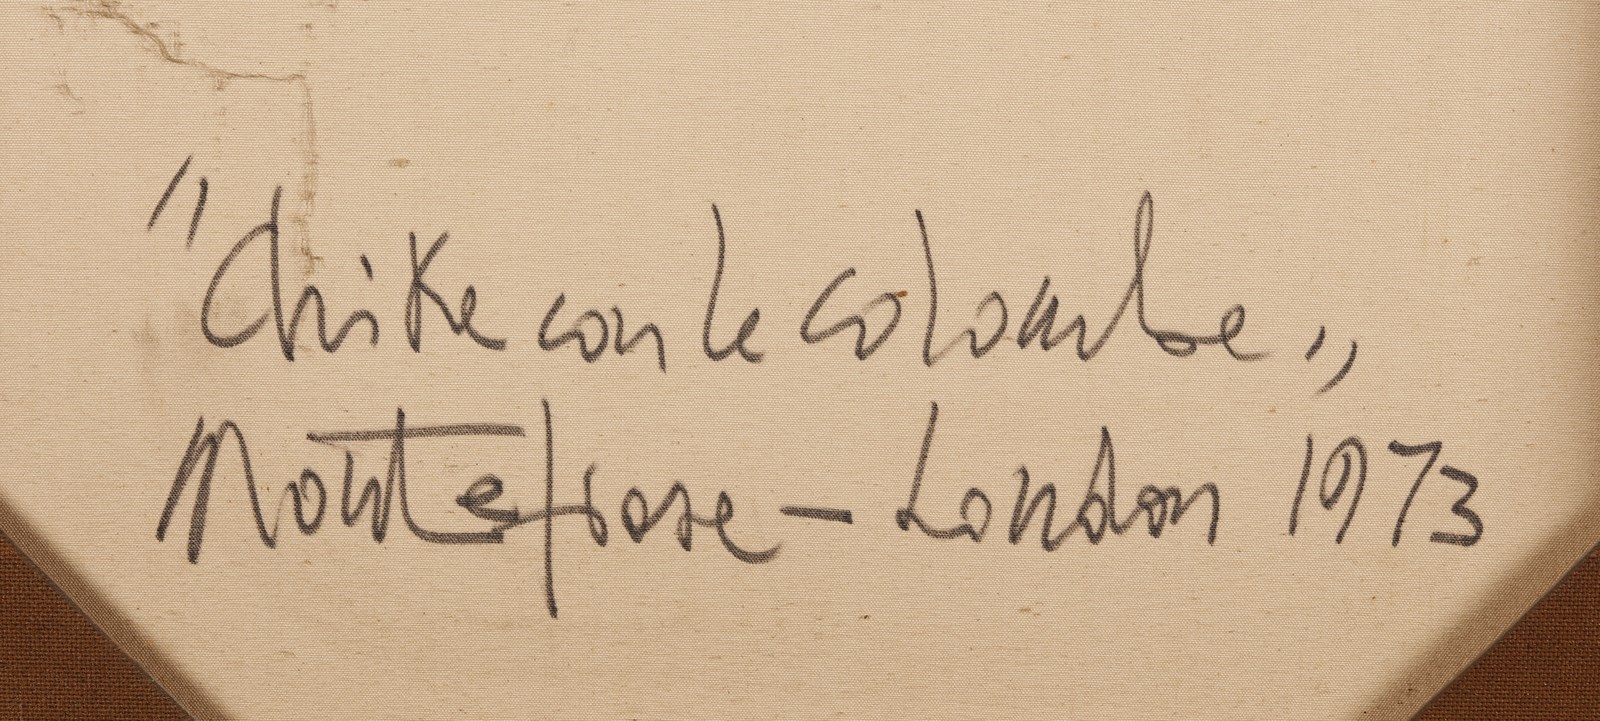 "Chike con le colombe"
Montefiore – London 1973